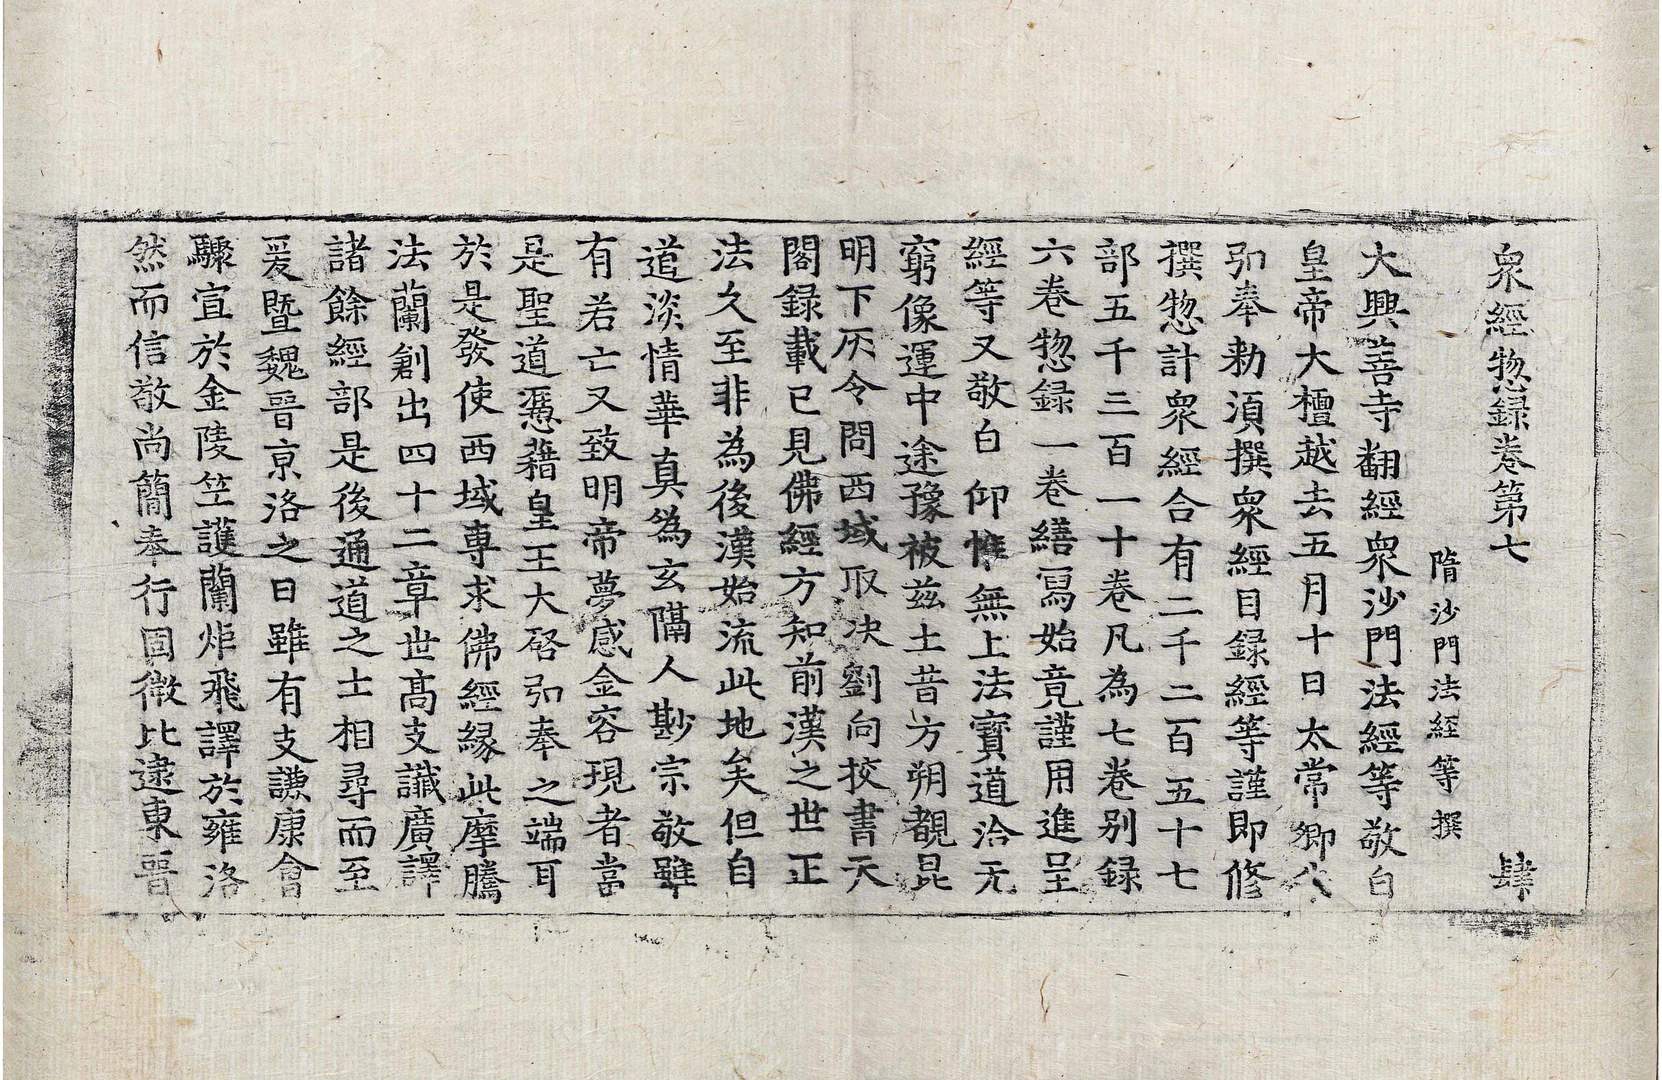 衆經惣録卷第七 肆
隋沙門法經等撰
大興善寺翻經衆沙門法經等敬白
皇帝大檀越去五月十日太常卿
弘奉勑湏撰衆經目録經等謹即修
撰惣計衆經合有二千二百五十七
部五千三百一十卷凡為七卷別録
六卷惣録一卷繕寫始竟謹用進呈
經等又敬白仰惟無上法寶道洽无
窮像運中途豫被兹土昔方朔覩昆
明下灰令問西域取决劉向挍書天
閣録載已見佛經方知前漢之世正
法久至非為後漢始流此地矣但自
道淡情華真爲玄隔人尠宗敬雖
有若亡又致明帝夢感金容現者當
是聖道憑藉皇王大啓弘奉之端耳
於是發使西域專求佛經縁此摩騰
法蘭創出四十二章世髙支讖廣譯
諸餘經部是後通道之士相尋而至
爰暨魏晉京洛之日雖有支謙康會
驟宣於金陵竺護蘭炬飛譯於雍洛
然而信敬尚簡奉行固微比逮東晉